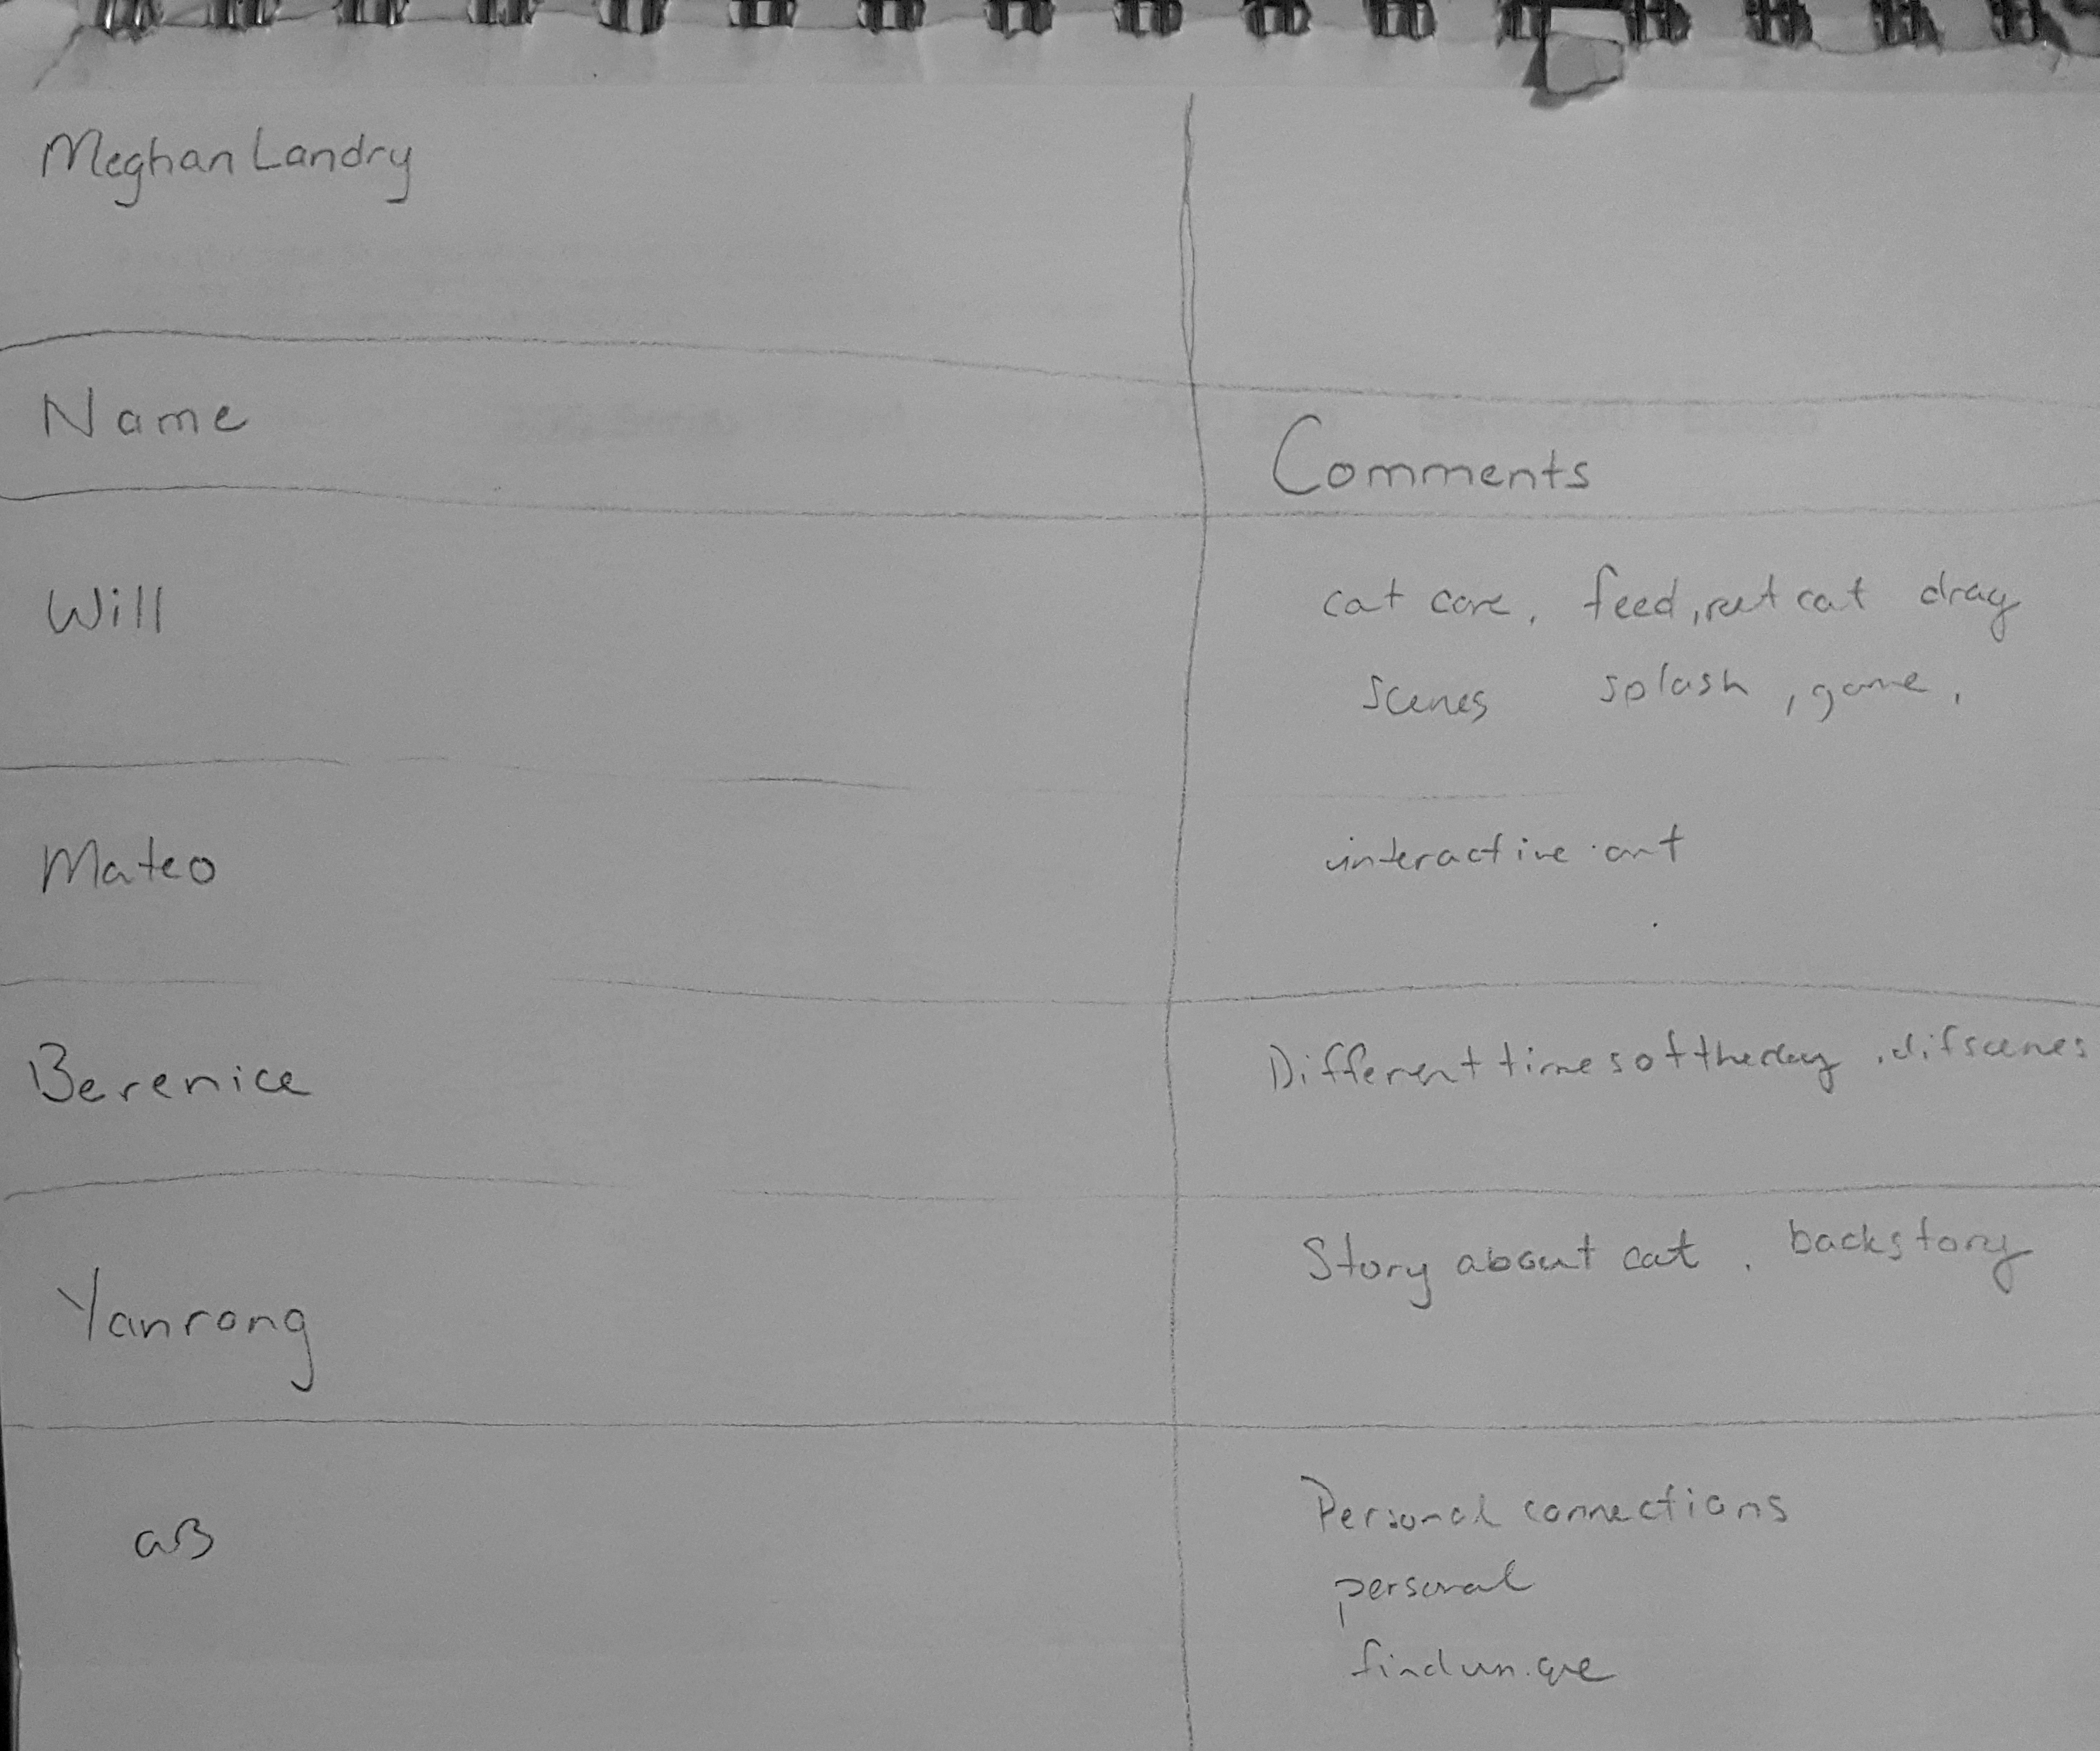 Meghan Landry
Name
Comments
Will
cat care, feed, pet cat drag
scenes splash, game,
Mateo
interactive art
Berenice
Different times of the day, dif scenes
Yanrong
Story about cat. backstory
aB
Personal connections
personal
find unique